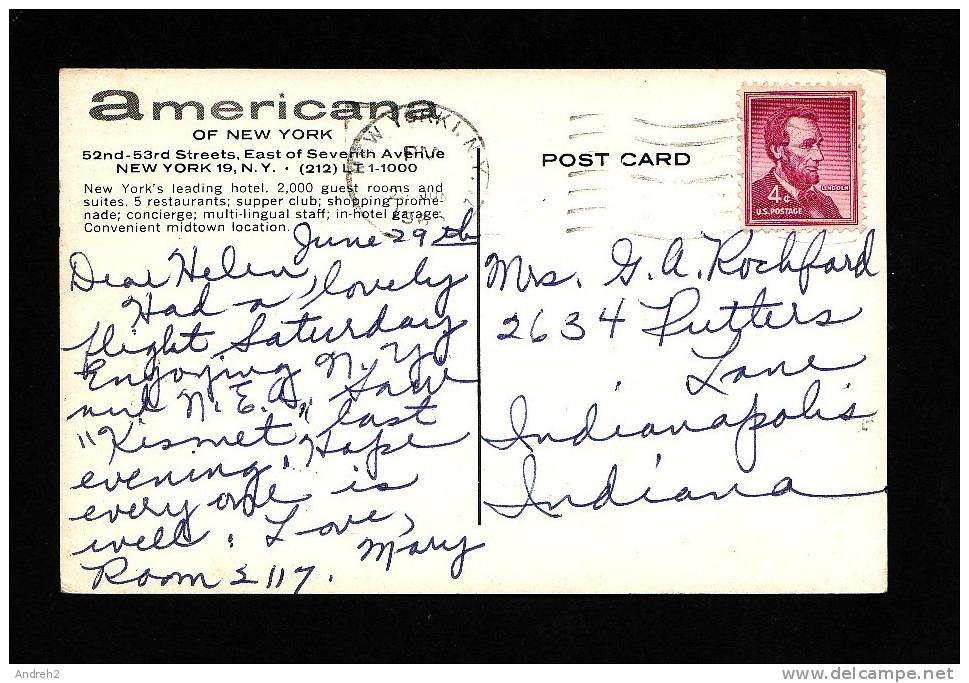 americana
OF NEW YORK
52nd-53rd Streets, East of Seventh Avenue
NEW YORK 19, N.Y. • (212) LT 1-1000
New York's leading hotel. 2,000 guest rooms and
suites. 5 restaurants; supper club; shopping prome-
nade; concierge; multi-lingual staff; in-hotel garage.
Convenient midtown location.
June 29th
Dear Helen,
Had a lovely
flight Saturday
Enjoying N.Y.
and N.E.A. Saw
"Kismet" last
evening. Hope
every one is
well. Love,
Mary
Room 2117.
NEW YORK 1, N.Y.
PM
POST CARD
4¢
LINCOLN
U.S. POSTAGE
Mrs. G. A. Rochford
2634 Putters
Lane
Indianapolis
Indiana
Andreh2
www.delcampe.net